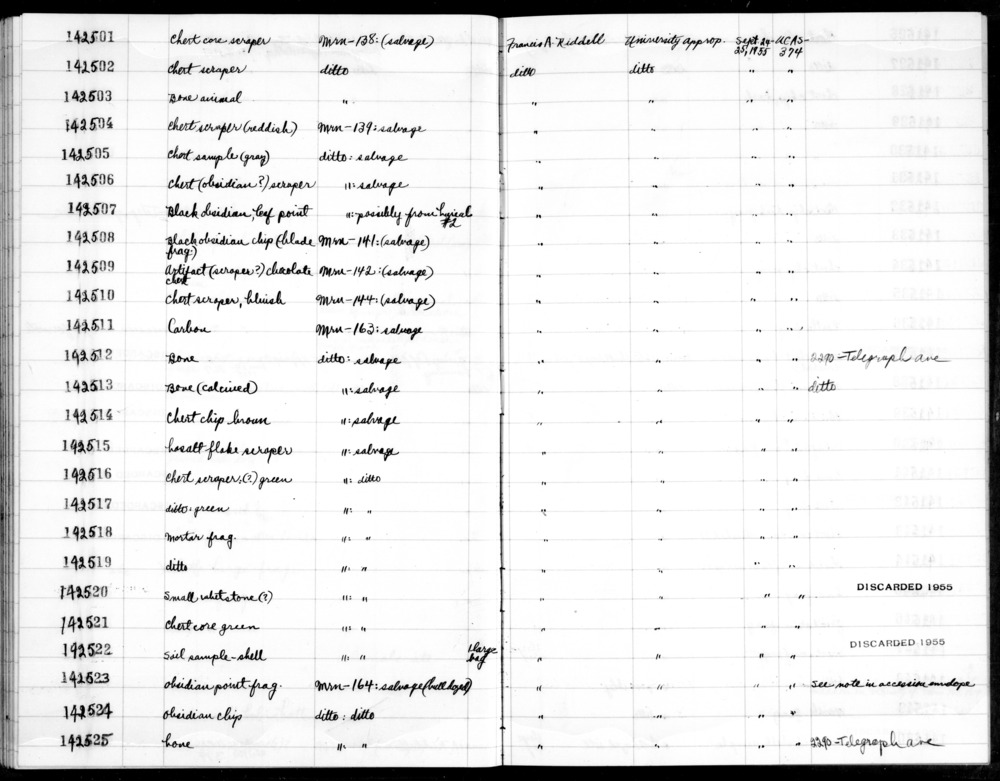 142501 Chert core scraper Mrn-138: (salvage) Francis A. Riddell University approp. Sept. 24-25, 1955 UCAS-374
142502 Chert scraper ditto ditto ditto " "
142503 Bone animal " " " " "
142504 Chert scraper (reddish) Mrn-139: salvage " " " "
142505 Chert sample (gray) ditto: salvage " " " "
142506 Chert (obsidian?) scraper ": salvage " " " "
142507 Black obsidian, leaf point ": possibly from burial #2 " " " "
142508 Black obsidian chip (blade frag.) Mrn-141: (salvage) " " " "
142509 Artifact (scraper?) chocolate chert Mrn-142: (salvage) " " " "
142510 Chert scraper, bluish Mrn-144: (salvage) " " " "
142511 Carbon Mrn-163: salvage " " " "
142512 Bone ditto: salvage " " " " 2290-Telegraph ave
142513 Bone (calcined) ": salvage " " " " ditto
142514 Chert chip brown ": salvage " " " "
142515 basalt flake scraper ": salvage " " " "
142516 Chert scraper; (?) green ": ditto " " " "
142517 ditto: green ": " " " " "
142518 Mortar frag. ": " " " " "
142519 ditto ": " " " " "
142520 Small whetstone (?) ": " " " " " DISCARDED 1955
142521 Chert core green ": " " " " "
142522 Soil sample-shell ": " 1 large bag " " " " DISCARDED 1955
142523 obsidian point frag. Mrn-164: salvage (bulldozed) " " " " See note in accession envelope
142524 obsidian chip ditto: ditto " " " "
142525 bone ": " " " " " 2290-Telegraph ave